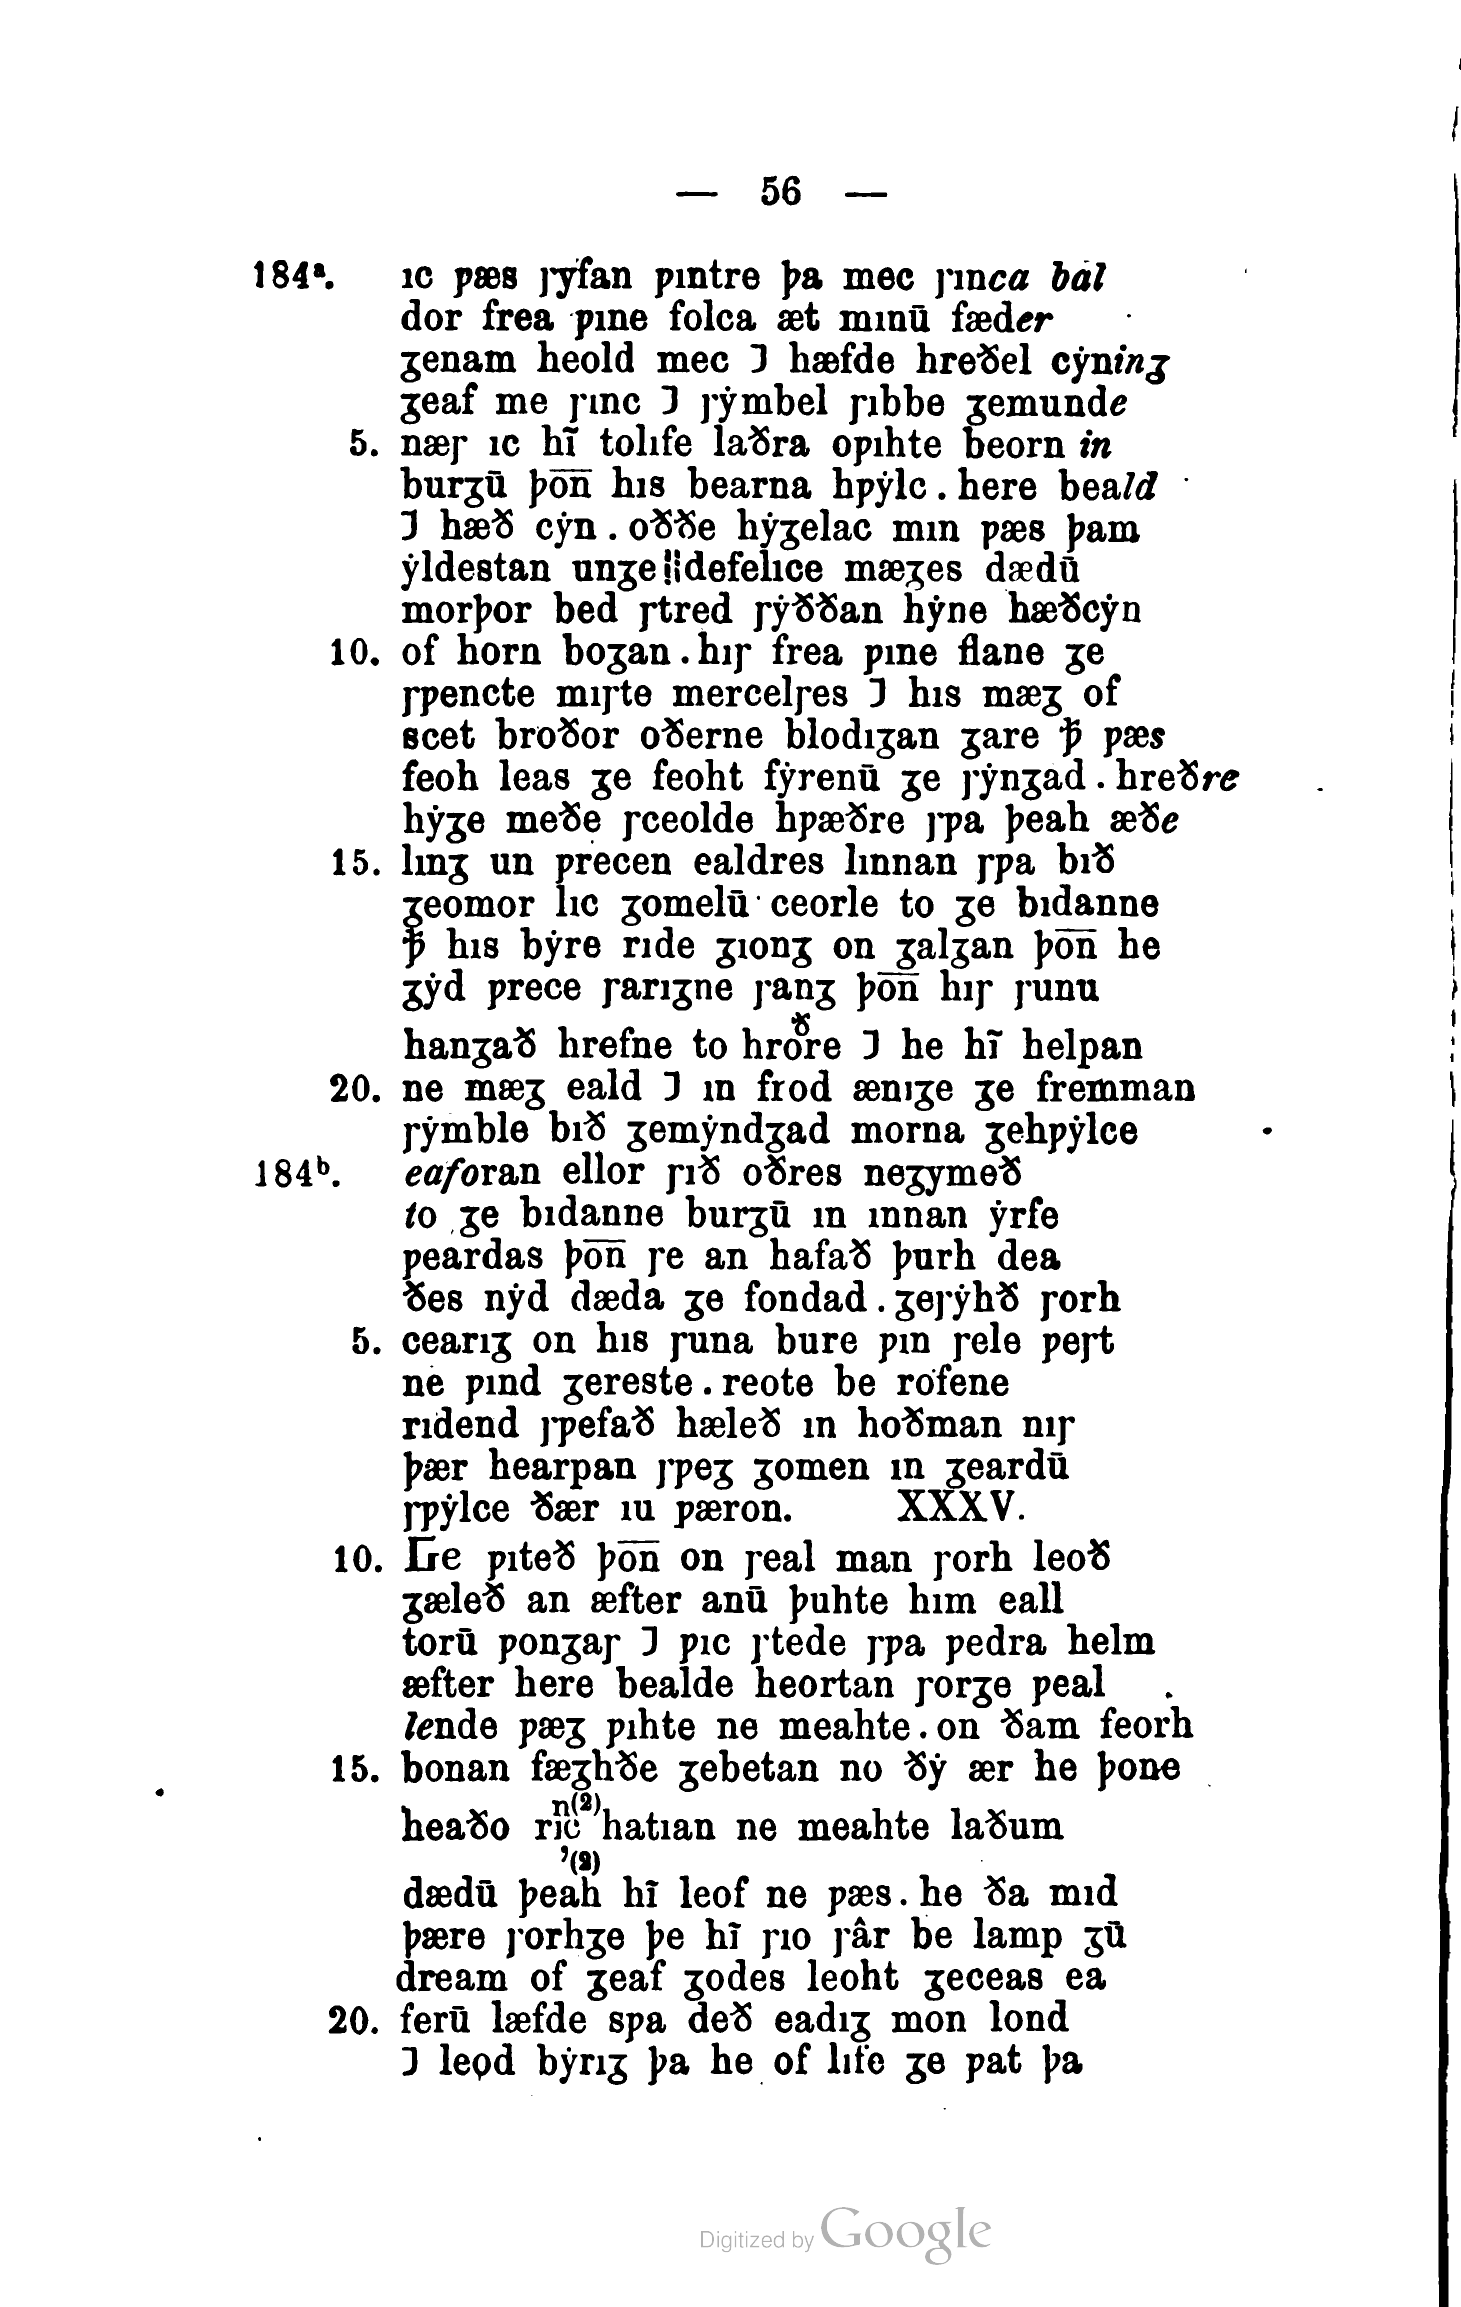 — 56 —
184ᵃ. ıc ƿæs ꞅẏfan ƿıntre þa mec ꞅınca bal
dor frea ƿıne folca æt mınū fæder
ȝenam heold mec ⁊ hæfde hreðel cẏninȝ
ȝeaf me ꞅınc ⁊ ꞅẏmbel ꞅıbbe ȝemunde
5. næꞅ ıc hı̄ tolıfe laðra oƿıhte beorn in
burȝū þōn̄ hıs bearna hƿẏlc . here beald
⁊ hæð cẏn . oððe hẏȝelac mın ƿæs þam
ẏldestan unȝe¦¦defelıce mæȝes dædū
morþor bed ꞅtred ꞅẏððan hẏne hæðcẏn
10. of horn boȝan . hıꞅ frea ƿıne flane ȝe
ꞅƿencte mıꞅte mercelꞅes ⁊ hıs mæȝ of
scet broðor oðerne blodıȝan ȝare ꝥ ƿæs
feoh leas ȝe feoht fẏrenū ȝe ꞅẏnȝad . hreðre
hẏȝe meðe ꞅceolde hƿæðre ꞅƿa þeah æðe
15. lınȝ un ƿrecen ealdres lınnan ꞅƿa bıð
ȝeomor lıc ȝomelū ceorle to ȝe bıdanne
ꝥ hıs bẏre rıde ȝıonȝ on ȝalȝan þōn̄ he
ȝẏd ƿrece ꞅarıȝne ꞅanȝ þōn̄ hıꞅ ꞅunu
ð
hanȝað hrefne to hrore ⁊ he hı̄ helpan
20. ne mæȝ eald ⁊ ın frod ænıȝe ȝe fremman
ꞅẏmble bıð ȝemẏndȝad morna ȝehƿẏlce
184ᵇ. eaforan ellor ꞅıð oðres neȝymeð
to ȝe bıdanne burȝū ın ınnan ẏrfe
ƿeardas þōn̄ ꞅe an hafað þurh dea
ðes nẏd dæda ȝe fondad . ȝeꞅẏhð ꞅorh
5. cearıȝ on hıs ꞅuna bure ƿın ꞅele ƿeꞅt
ne ƿınd ȝereste . reote be rofene
rıdend ꞅƿefað hæleð ın hoðman nıꞅ
þær hearpan ꞅƿeȝ ȝomen ın ȝeardū
ꞅƿẏlce ðær ıu ƿæron. XXXV.
10. Ge ƿıteð þōn̄ on ꞅeal man ꞅorh leoð
ȝæleð an æfter anū þuhte hım eall
torū ƿonȝaꞅ ⁊ ƿıc ꞅtede ꞅƿa ƿedra helm
æfter here bealde heortan ꞅorȝe ƿeal
lende ƿæȝ ƿıhte ne meahte . on ðam feorh
15. bonan fæȝhðe ȝebetan no ðẏ ær he þone
n(2)
heaðo rıc hatıan ne meahte laðum
’(2)
dædū þeah hı̄ leof ne ƿæs . he ða mıd
þære ꞅorhȝe þe hı̄ ꞅıo ꞅâr be lamp ȝū
dream of ȝeaf ȝodes leoht ȝeceas ea
20. ferū læfde sƿa deð eadıȝ mon lond
⁊ leod bẏrıȝ þa he of lıfe ȝe ƿat þa
Digitized by Google